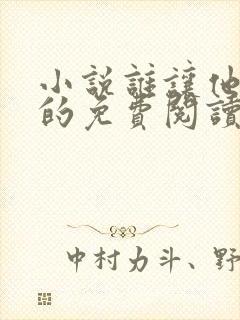 小說誰讓他
的免費閱讀
中村力斗、野